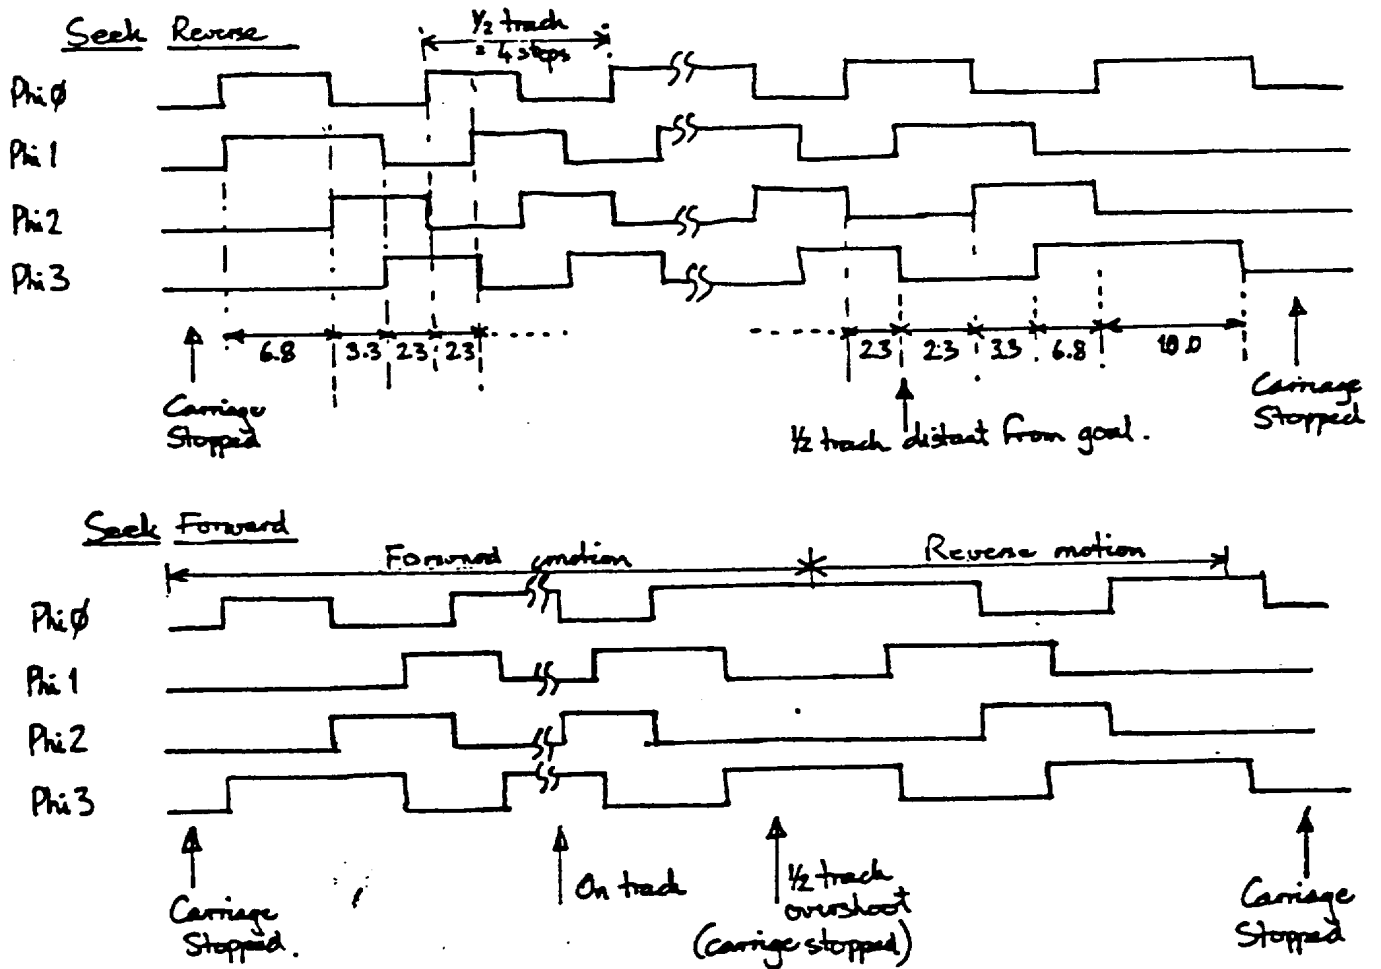 Seek Reverse
½ track
= 4 steps
Phi Ø
Phi 1
Phi 2
Phi 3
6.8 3.3 2.3 2.3
2.3 2.3 3.3 6.8 10.0
Carriage
Stopped
½ track distant from goal.
Carriage
Stopped
Seek Forward
Forward motion
Reverse motion
Phi Ø
Phi 1
Phi 2
Phi 3
Carriage
Stopped.
On track
½ track
overshoot
(carrige stopped)
Carriage
Stopped